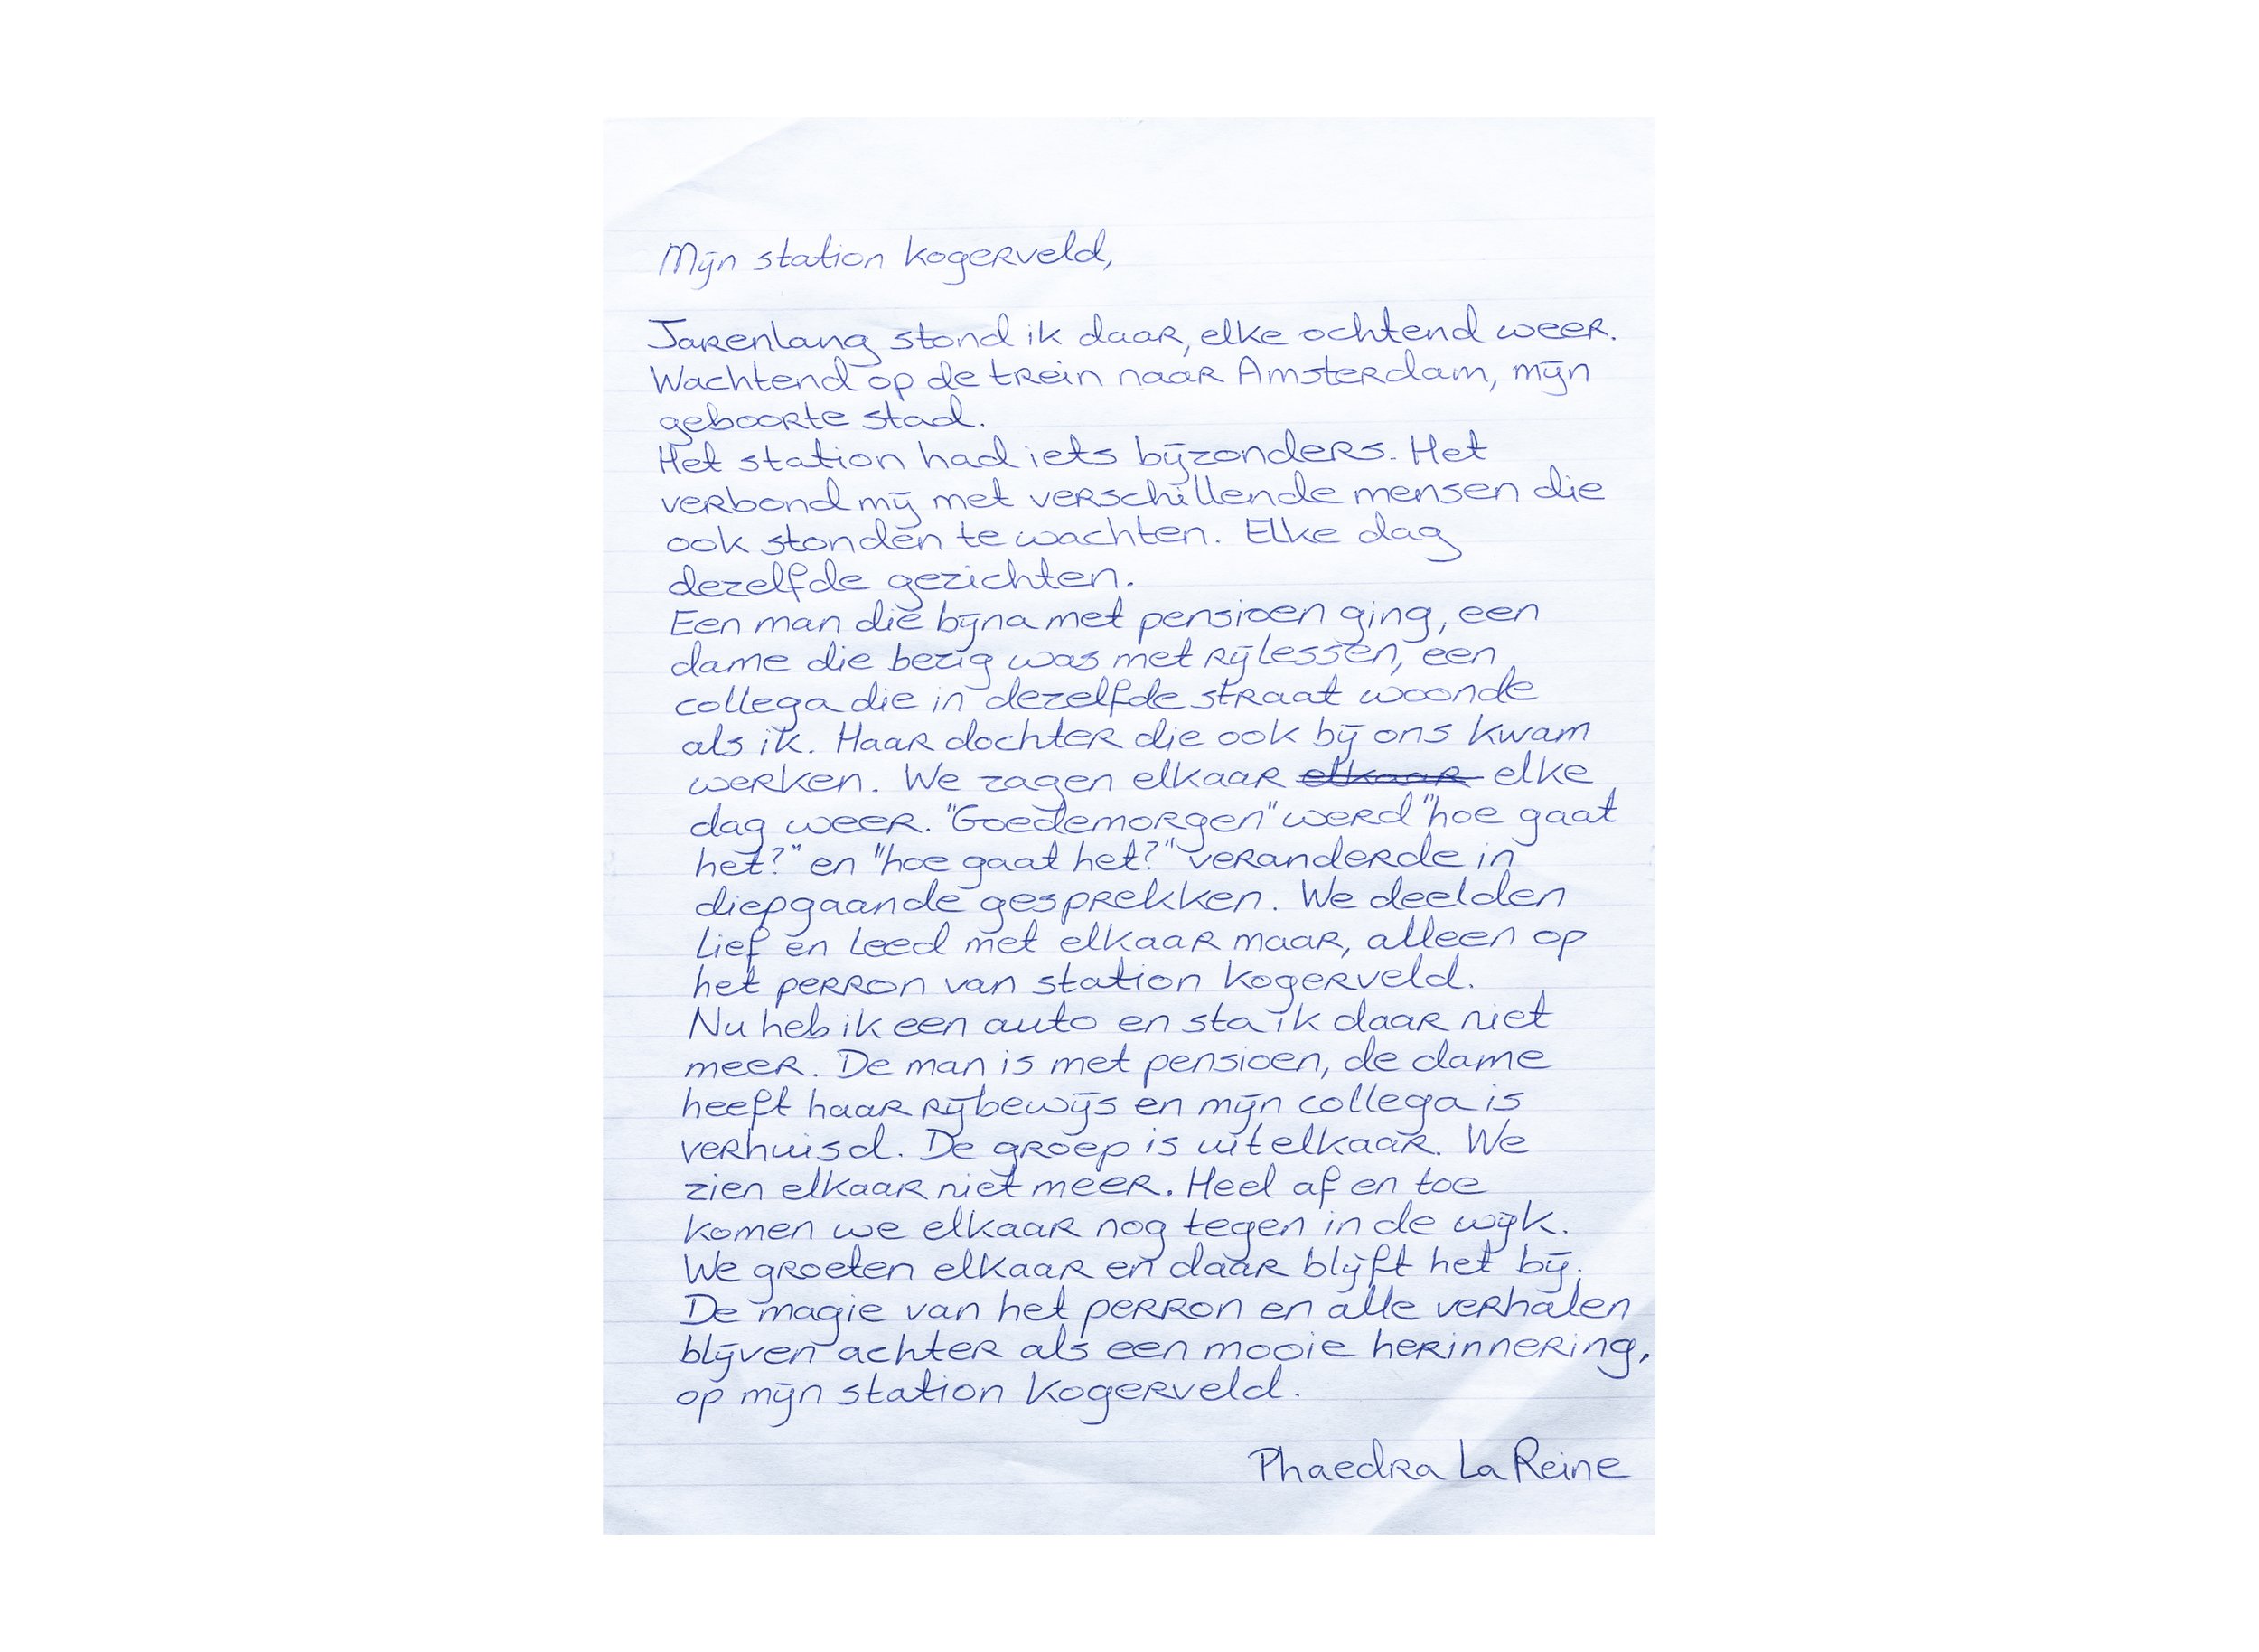 Mijn station Kogerveld,
Jarenlang stond ik daar, elke ochtend weer.
Wachtend op de trein naar Amsterdam, mijn
geboorte stad.
Het station had iets bijzonders. Het
verbond mij met verschillende mensen die
ook stonden te wachten. Elke dag
dezelfde gezichten.
Een man die bijna met pensioen ging, een
dame die bezig was met rijlessen, een
collega die in dezelfde straat woonde
als ik. Haar dochter die ook bij ons kwam
werken. We zagen elkaar ~~elkaar~~ elke
dag weer. "Goedemorgen" werd "hoe gaat
het?" en "hoe gaat het?" veranderde in
diepgaande gesprekken. We deelden
lief en leed met elkaar maar, alleen op
het perron van station Kogerveld.
Nu heb ik een auto en sta ik daar niet
meer. De man is met pensioen, de dame
heeft haar rijbewijs en mijn collega is
verhuisd. De groep is uitelkaar. We
zien elkaar niet meer. Heel af en toe
komen we elkaar nog tegen in de wijk.
We groeten elkaar en daar blijft het bij.
De magie van het perron en alle verhalen
blijven achter als een mooie herinnering,
op mijn station Kogerveld.
Phaedra La Reine